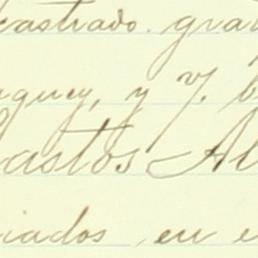 castrado. gra
guey, y V. b
Castos Al
iados, en e